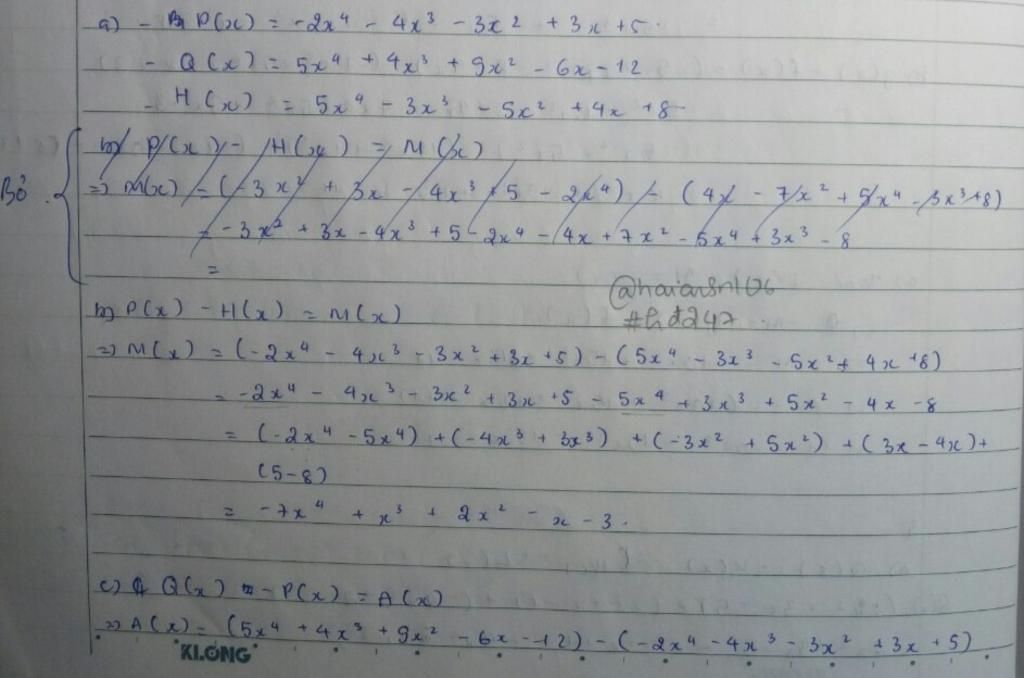 a) - P(x) = -2x⁴ - 4x³ - 3x² + 3x + 5.
- Q(x) = 5x⁴ + 4x³ + 9x² - 6x - 12
- H(x) = 5x⁴ - 3x³ - 5x² + 4x + 8
Bỏ
b) P(x) - H(x) = M(x)
=> M(x) = (-3x² + 3x - 4x³ + 5 - 2x⁴) - (4x - 7x² + 5x⁴ - 3x³ + 8)
= -3x² + 3x - 4x³ + 5 - 2x⁴ - 4x + 7x² - 5x⁴ + 3x³ - 8
=
b) P(x) - H(x) = M(x)
=> M(x) = (-2x⁴ - 4x³ - 3x² + 3x + 5) - (5x⁴ - 3x³ - 5x² + 4x + 8)
= -2x⁴ - 4x³ - 3x² + 3x + 5 - 5x⁴ + 3x³ + 5x² - 4x - 8
= (-2x⁴ - 5x⁴) + (-4x³ + 3x³) + (-3x² + 5x²) + (3x - 4x) +
(5 - 8)
= -7x⁴ + x³ + 2x² - x - 3.
c) Q(x) - P(x) = A(x)
=> A(x) = (5x⁴ + 4x³ + 9x² - 6x - 12) - (-2x⁴ - 4x³ - 3x² + 3x + 5)
KLONG